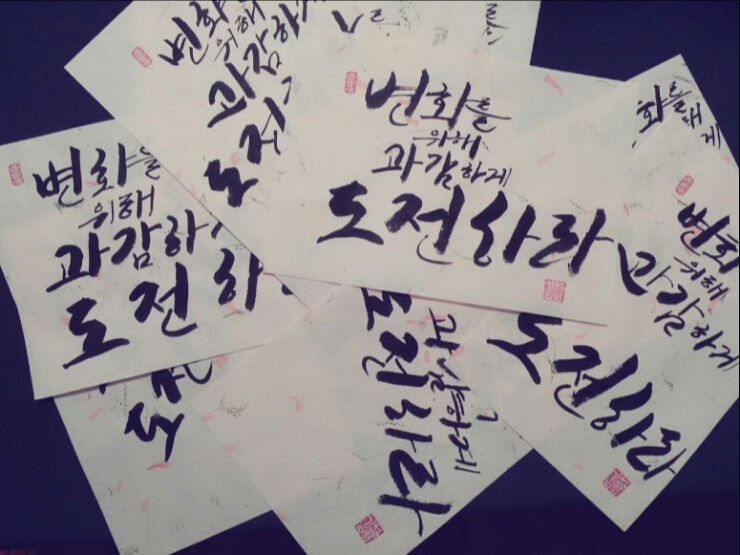 변화를
위해
과감하게
도전하라
변화를
위해
과감하
도전하
변화
위해
과감하
도전
화를
해
게
변화
위해
과감하게
도전하라
과감하게
도전하라
도전